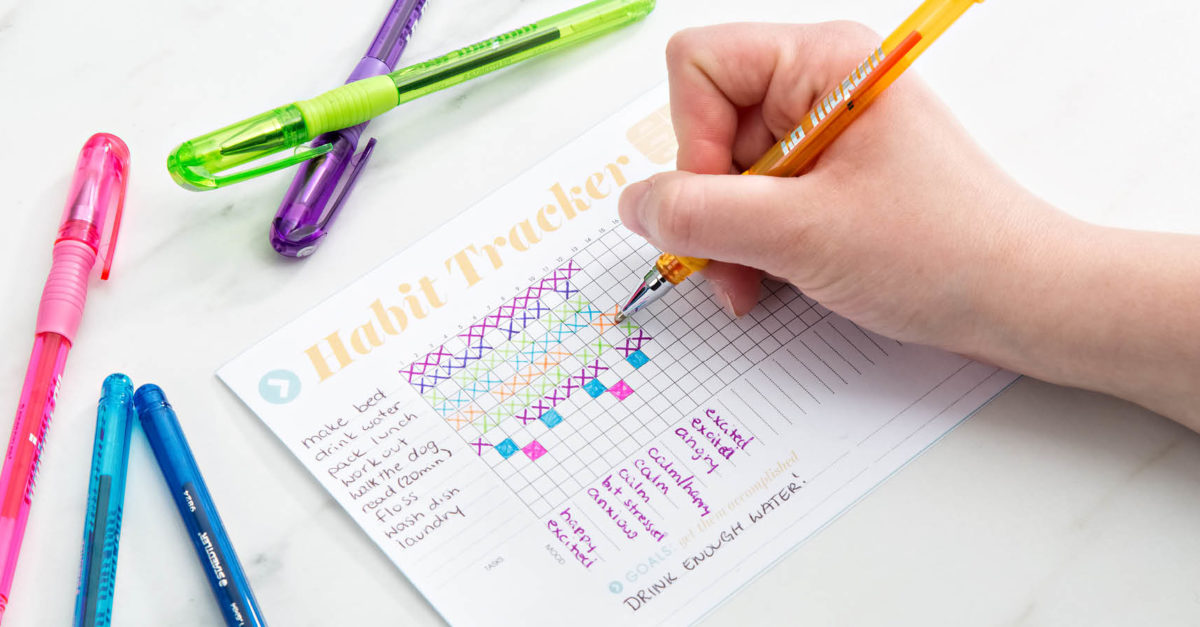 Habit Tracker
1 2 3 4 5 6 7 8 9 10 11 12 13 14 15 16
make bed
drink water
pack lunch
work out
walk the dog
read (20min)
floss
wash dish
laundry
TASKS
MOOD
happy
excited
anxious
bit stressed
calm
calm
calm/happy
angry
excited
excited
GOALS: get them accomplished
DRINK ENOUGH WATER!
STAEDTLER
9824